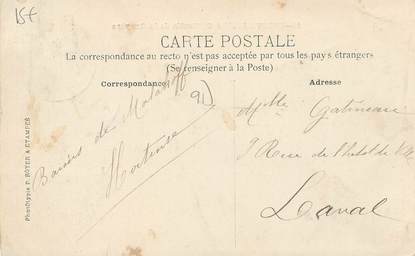 15€
CARTE POSTALE
La correspondance au recto n'est pas acceptée par tous les pays étrangers
(Se renseigner à la Poste)
Correspondance
Adresse
Mlle Gatineau
9 Rue de l'hotel de V
Laval
Baisers de
Hortense
Phototypie